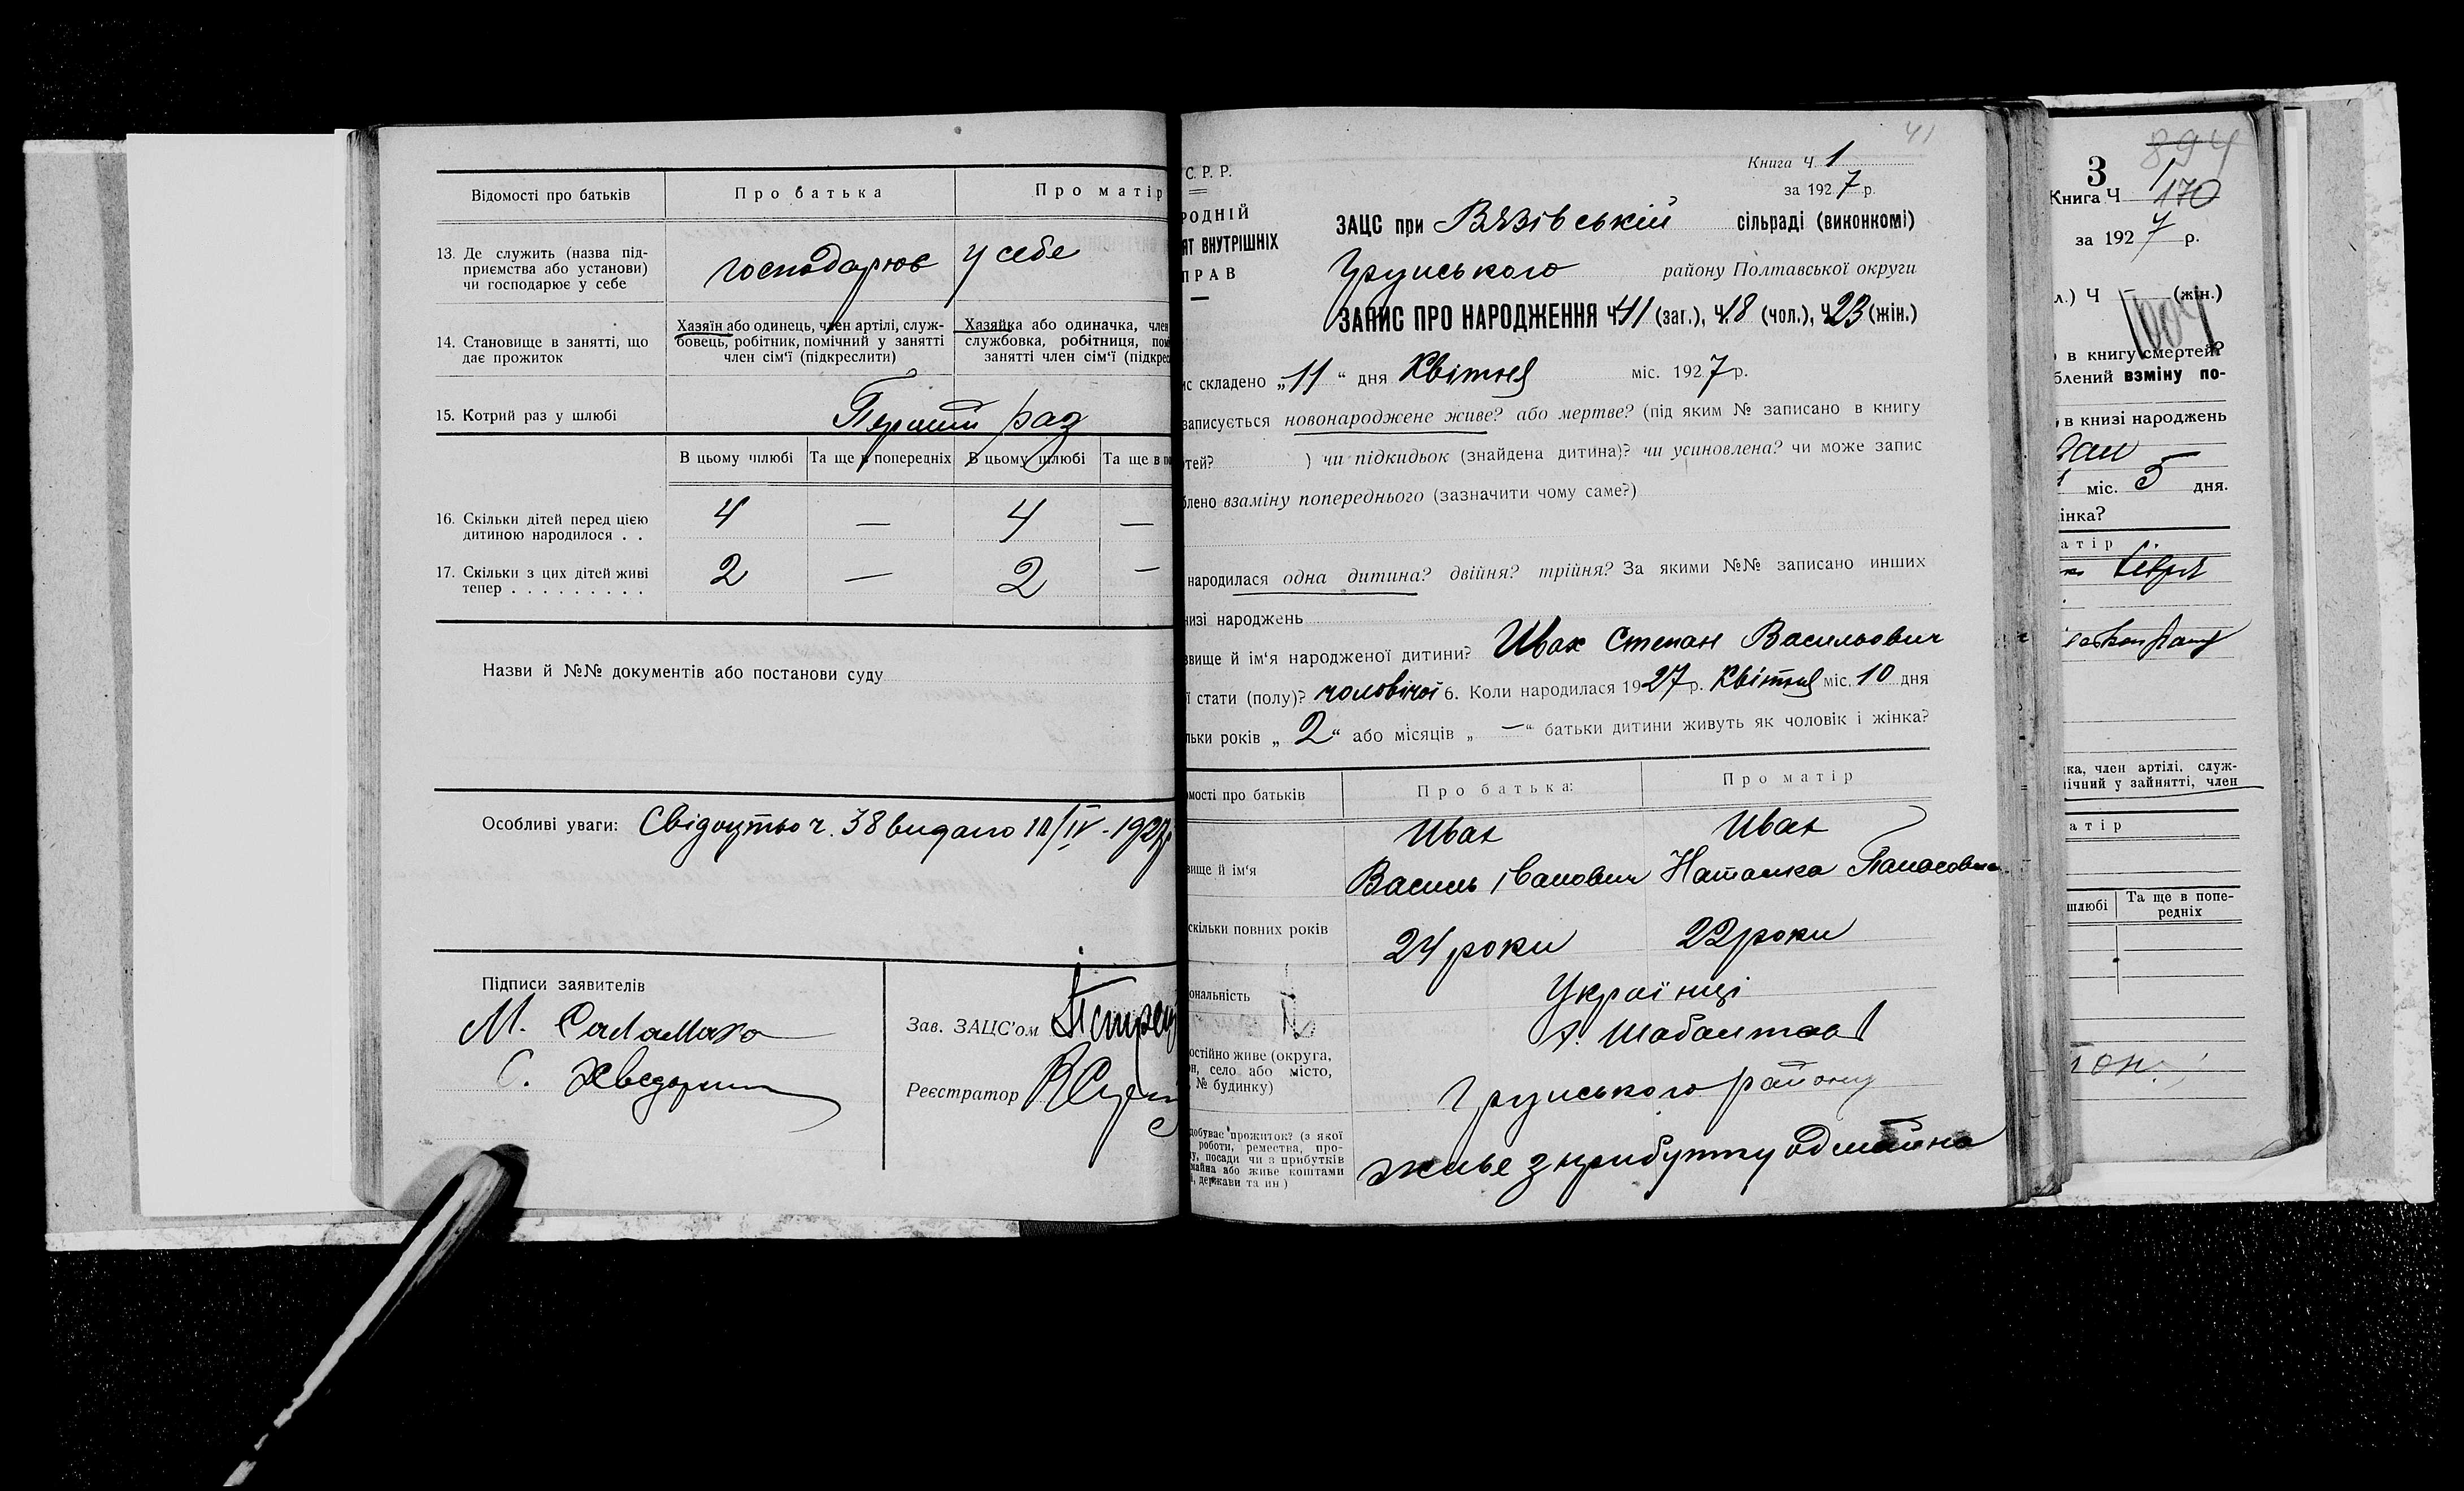 Відомості про батьків
Про батька
Про матір
13. Де служить (назва під-
приємства або установи)
чи господарює у себе
господарює у себе
14. Становище в занятті, що
дає прожиток
Хазяїн або одинець, член артілі, служ-
бовець, робітник, помічний у занятті
член сім'ї (підкреслити)
Хазяйка або одначка, член
службовка, робітниця, пом
занятті член сім'ї (підкрес
15. Котрий раз у шлюбі
Перший раз
В цьому шлюбі
Та ще в попередніх
В цьому шлюбі
Та ще в по
16. Скільки дітей перед цією
дитиною народилося . .
4 — 4 —
17. Скільки з цих дітей живі
тепер . . . . . . . . .
2 — 2 —
Назви й №№ документів або постанови суду
Особливі уваги: Свідоцтво ч. 38 видано 11/IV-1927р
Підписи заявителів
М. Саламаха
С.
Зав. ЗАЦС'ом
Реєстратор
41
С. Р. Р.
РОДНІЙ
ЯТ ВНУТРІШНІХ
ПРАВ
Книга Ч. 1
за 1927 р.
ЗАЦС при Вязівській сільраді (виконкомі)
Грунського району Полтавської округи
ЗАПИС ПРО НАРОДЖЕННЯ Ч 41 (заг.), Ч. 18 (чол.), Ч 23 (жін.)
ис складено „11“ дня Квітня міс. 1927 р.
записується новонароджене живе? або мертве? (під яким № записано в книгу
ртей? ) чи підкидьок (знайдена дитина)? чи усиновлена? чи може запис
блено взаміну попереднього (зазначити чому саме?)
народилася одна дитина? двійня? трійня? За якими №№ записано инших
низі народжень
звище й ім'я народженої дитини? Ивах Степан Васильович
ї стати (полу)? чоловічої 6. Коли народилася 1927 р. Квітня міс. 10 дня
льки років „2“ або місяців „—“ батьки дитини живуть як чоловік і жінка?
омості про батьків
Про батька:
Про матір
вище й ім'я
Ивах
Василь Іванович
Ивах
Наталка Панасовна
скільки повних років
24 роки
22 роки
ональність
Українці
остійно живе (округа,
н, село або місто,
№ будинку)
Грунського району
добуває прожиток? (з якої
роботи, ремества, про-
у, посади чи з прибутків
майна або живе коштами
, держави та ин.)
живе з прибутку од майна
894
3
Книга Ч 1
170
за 1927 р.
л.) Ч — (жін.)
в книгу смертей?
блений взміну по-
в книзі народжень
міс. 5 дня.
інка?
атір
ка, член артілі, служ-
ічний у зайнятті, член
атір
шлюбі
Та ще в попе-
редніх